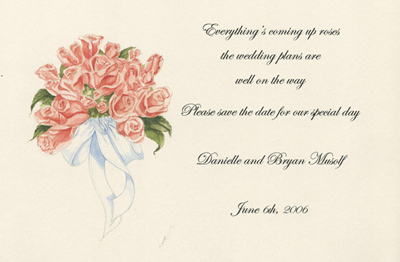 Everything's coming up roses
the wedding plans are
well on the way
Please save the date for our special day
Danielle and Bryan Musolf
June 6th, 2006